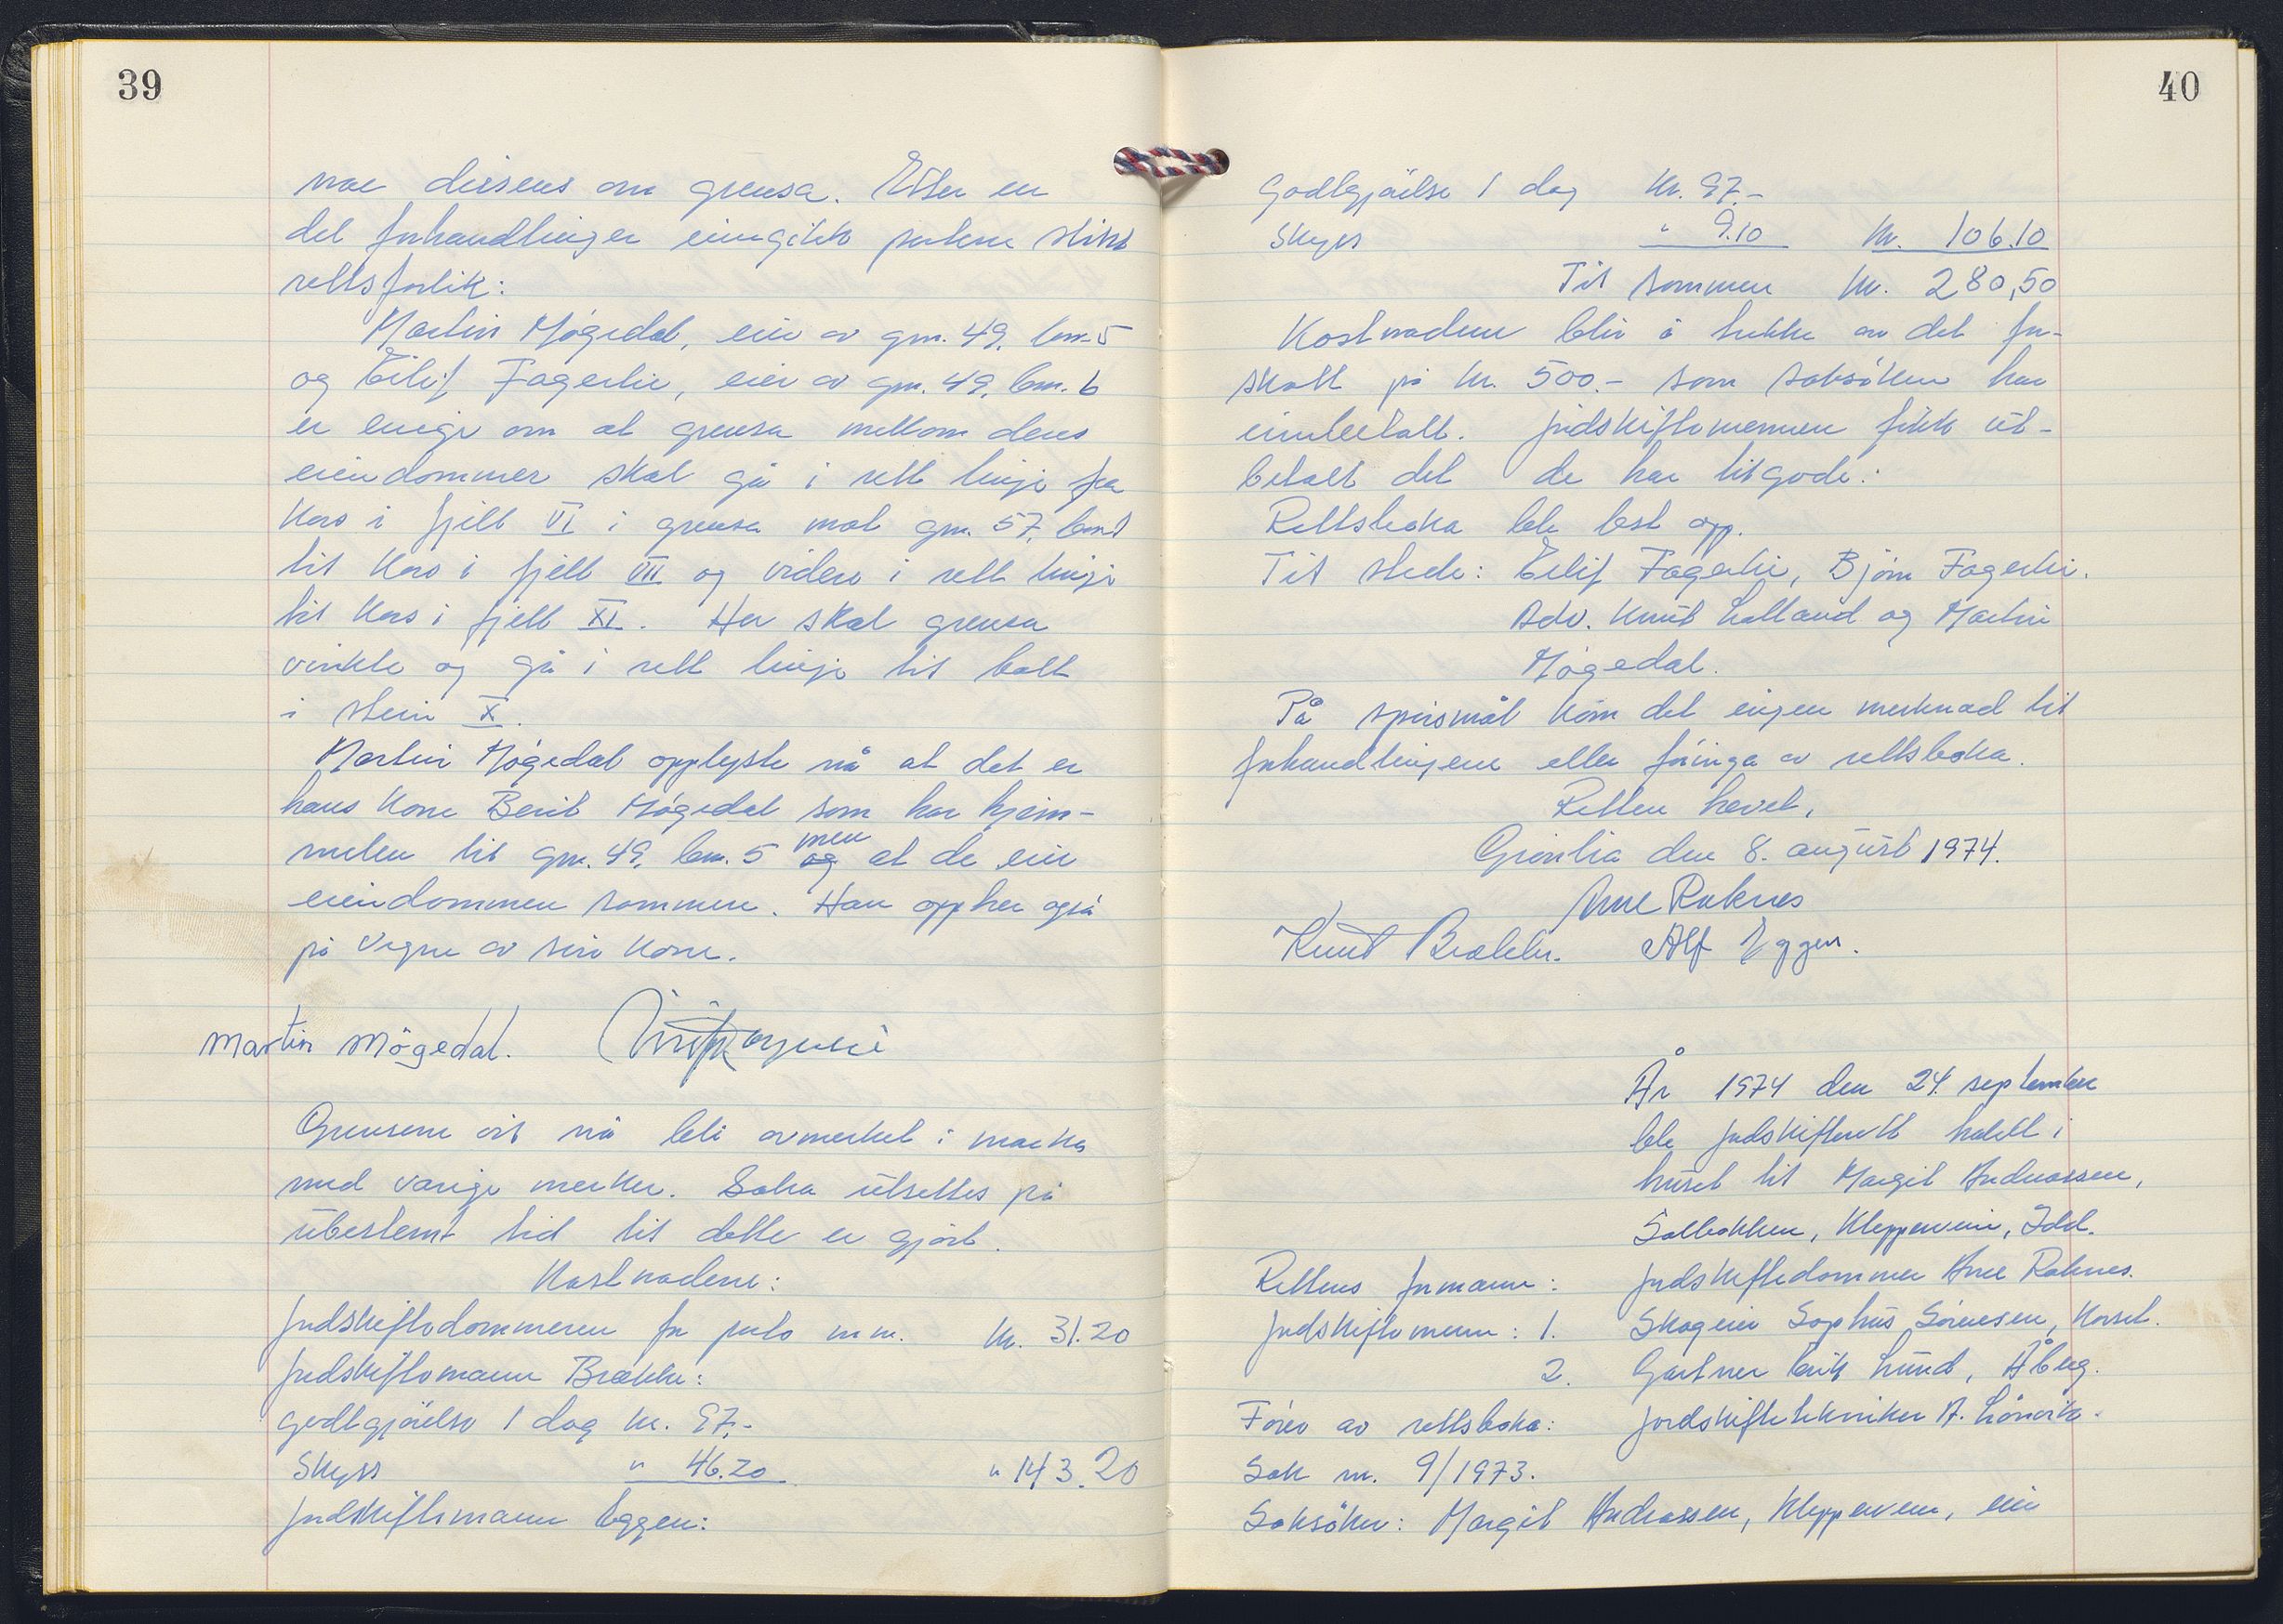 39
noe dissens om grensa. Etter en
del forhandlinger inngikk partene slikt
rettsforlik:
Martin Møgedal, eier av gnr. 49, bnr. 5
og Eilif Fagerlie, eier av gnr. 49, bnr. 6
er enige om at grensa mellom deres
eiendommer skal gå i rett linje fra
kors i fjell VI i grensa mot gnr. 57, bnr 1
til kors i fjell VII og videre i rett linje
til kors i fjell XI. Her skal grensa
vinkle og gå i rett linje til bolt
i stein X.
Martin Møgedal opplyste nå at det er
hans kone Berit Møgedal som har hjem-
melen til gnr. 49, bnr. 5 og men at de eier
eiendommen sammen. Han opptrer også
på vegne av sin kone.
Martin Møgedal.
Grensene vil nå bli avmerket i marka
med varige merker. Saka utsettes på
ubestemt tid til dette er gjort.
Kostnadene:
Jordskiftedommeren for porto m.m. kr. 31.20
Jordskiftemann Brække:
godtgjørelse 1 dag kr. 97,-
Skyss " 46.20 " 143.20
Jordskiftemann Eggen:
40
Godtgjørelse 1 dag kr. 97.-
Skyss " 9.10 kr. 106.10
Til sammen kr. 280,50
Kostnadene blir å trekke av det for-
skott på kr. 500.- som saksøkeren har
innbetalt. Jordskiftemennene fikk ut-
betalt det de har tilgode.
Rettsboka ble lest opp.
Til stede: Eilif Fagerlie, Bjørn Fagerlie.
Adv. Knut Lolland og Martin
Møgedal.
På spørsmål kom det ingen merknad til
forhandlingene eller føringa av rettsboka.
Retten hevet,
Grønlia den 8. august 1974.
Arne Raknes
Knut Brække. Alf Eggen.
År 1974 den 24. september
ble jordskifterett holdt i
huset til Margit Andreassen,
Solbakken, Kleppervein, Idd.
Rettens formann: Jordskiftedommer Arne Raknes.
Jordskiftemenn: 1. Skogeier Sophus Sørnesen, Korset.
2. Gartner Erik Lund, Åberg.
Fører av rettsboka: jordskiftetekniker A. Lånvik.
Sak nr. 9/1973.
Saksøker: Margit Andreassen, Kleppervein, eier